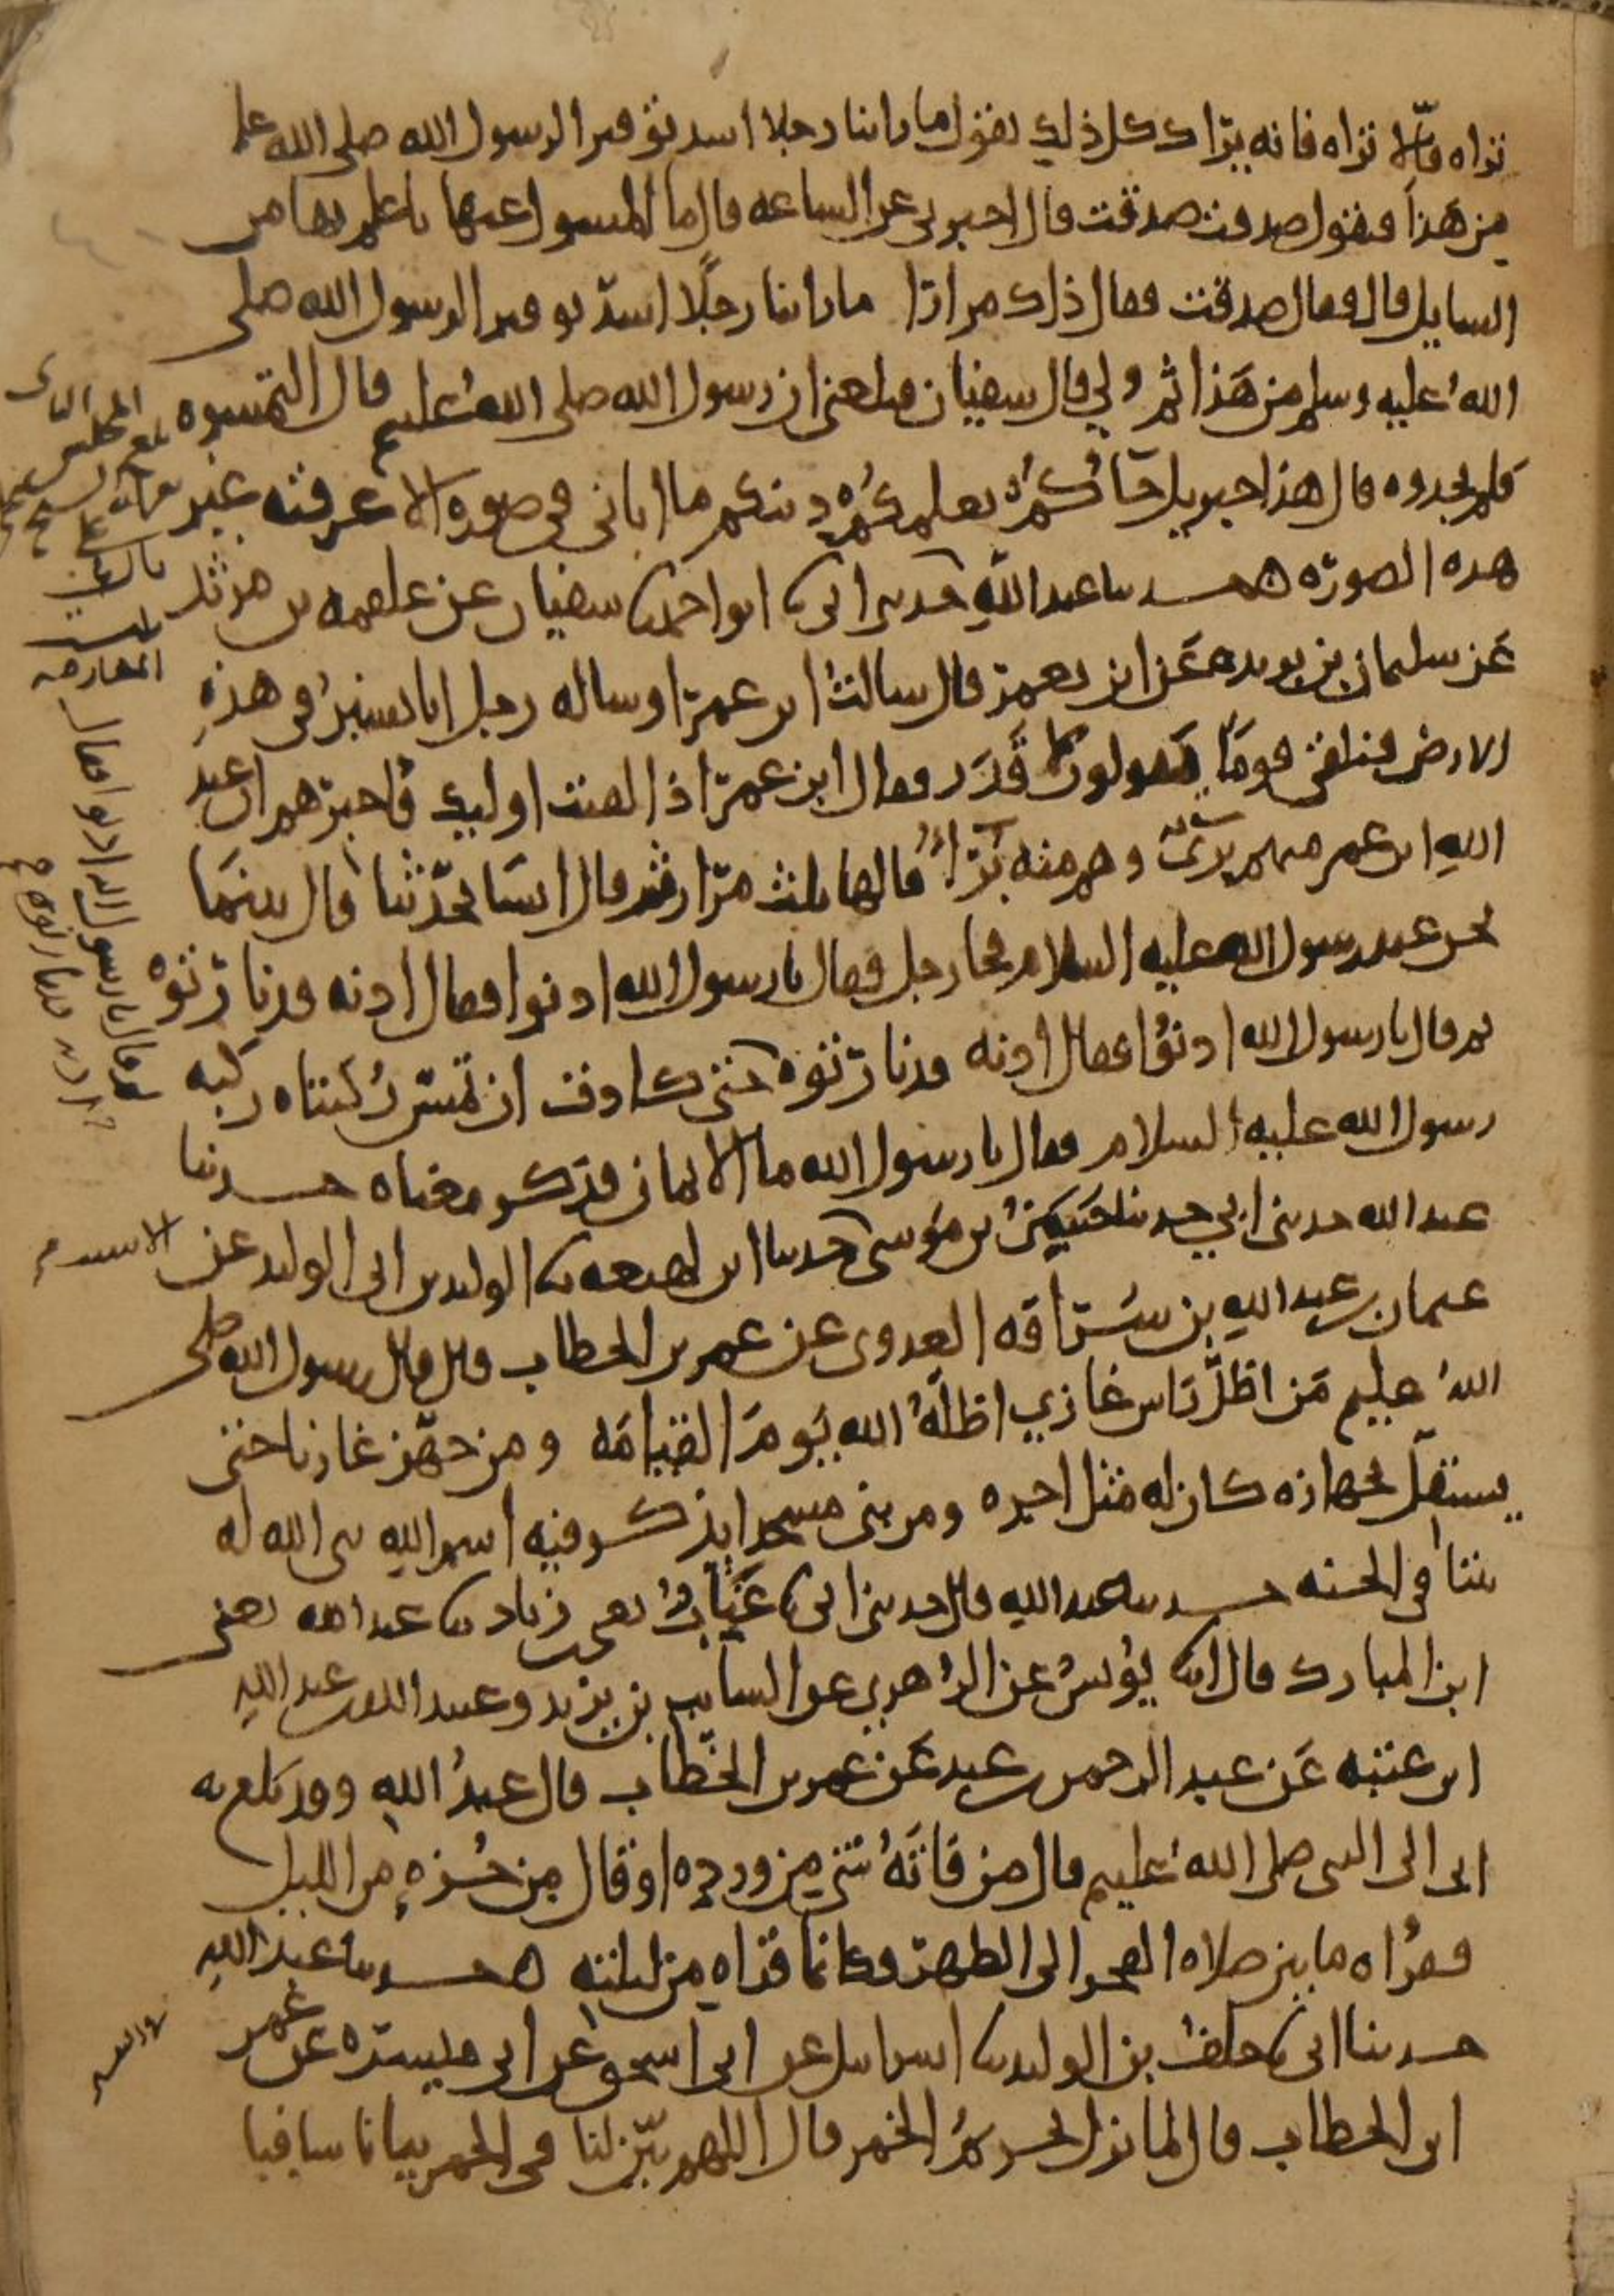 تراه فإلا تراه فانه يراك كل ذلك نقول ما راينا رجلا اشد توقيرا لرسول الله صلى الله عليه
من هذا فنقول صدقت صدقت قال اخبرني عن الساعه قال ما المسول عنها باعلم بها من
السايل قال فقال صدقت فقال ذلك مرارا ما راينا رجلا اشد توقيرا لرسول الله صلى
الله عليه وسلم من هذا ثم ولى قال سفيان فبلغني ان رسول الله صلى الله عليه قال التمسوه
فلم يجدوه قال هذا جبريل جاكم يعلمكم دينكم ما اتاني في صورة الا عرفته غير
هذه الصورة حدثنا عبد الله حدثني ابي ثنا ابو احمد ثنا سفيان عن علقمه بن مرثد
عن سليمان بن بريده عن ابن يعمر قال سالت ابن عمر او ساله رجل انا نسير في هذه
الارض فنلقى قوما يقولون لا قدر فقال ابن عمر اذا لقيت اوليك فاخبرهم ان عبد
الله ابن عمر منهم بريء وهم منه برآء قالها ثلث مرار ثم قال انشا يحدثنا قال بينما
نحن عند رسول الله عليه السلام فجا رجل فقال يا رسول الله ادنوا فقال ادنه فدنا رتوه
ثم قال يا رسول الله ادنوا فقال ادنه فدنا رتوه حتى كادت ان تمس ركبتاه ركبه
رسول الله عليه السلام فقال يا رسول الله ما الايمان فذكر معناه حدثنا
عبد الله حدثني ابي حدثنا حسن بن موسى حدثنا ابن لهيعه ثنا الوليد بن ابي الوليد عن
عثمان بن عبد الله بن سراقه العدوي عن عمر بن الخطاب قال قال رسول الله صلى
الله عليه من اظل راس غازي اظله الله يوم القيامه ومن جهز غازيا حتى
يستقل بجهازه كان له مثل اجره ومن بنى مسجدا يذكر فيه اسم الله بنى الله له
بيتا في الجنه حدثنا عبد الله قال حدثني ابي ثنا عتاب يعني بن زياد ثنا عبد الله يعني
ابن المبارك قال انا يونس عن الزهري عن السايب بن يزيد وعبيد الله بن عبد الله
ابن عتبه عن عبد الرحمن بن عبد عن عمر بن الخطاب قال عبد الله وقد بلغ به
ابي الى النبي صلى الله عليه قال من فاته شي من ورده او قال من جزه من الليل
فقراه ما بين صلاه الفجر الى الظهر فكانما قراه من ليلته حدثنا عبد الله
حدثنا ابي ثنا خلف بن الوليد ثنا اسرايل عن ابي اسحق عن ابي ميسره عن عمر
ابن الخطاب قال لما نزل تحريم الخمر قال اللهم بين لنا في الخمر بيانا شافيا